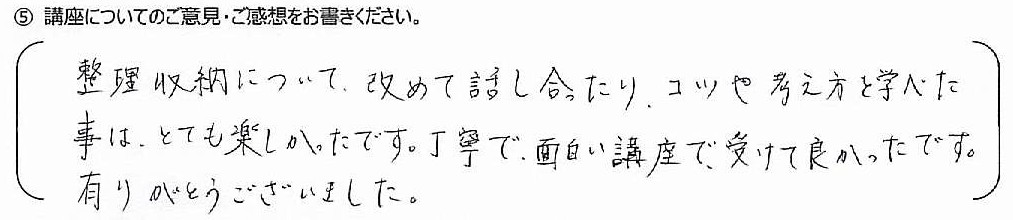 ⑤ 講座についてのご意見・ご感想をお書きください。
整理収納について、改めて話し合ったり、コツや考え方を学べた
事は、とても楽しかったです。丁寧で、面白い講座で、受けて良かったです。
有りがとうございました。